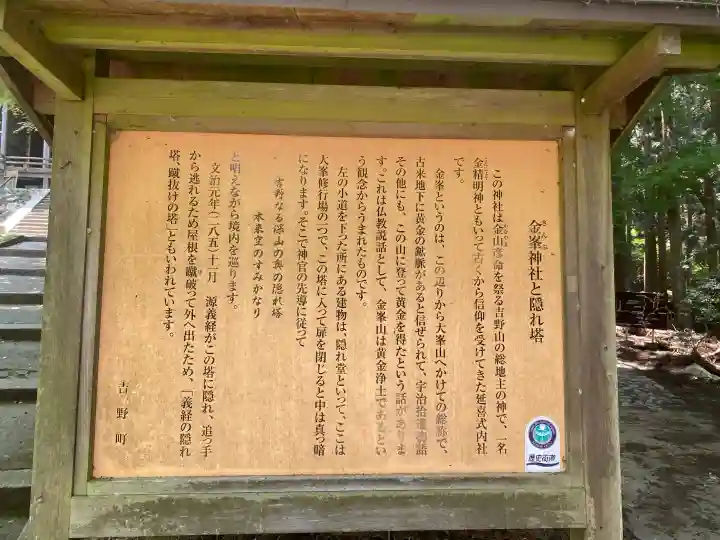 金峯神社と隠れ塔
この神社は金山彦命を祭る吉野山の総地主の神で、一名
金精明神ともいって古くから信仰を受けてきた延喜式内社
です。
金峯というのは、この辺りから大峯山へかけての総称で、
古来地下に黄金の鉱脈があると信ぜられて、宇治拾遺物語
その他にも、この山に登って黄金を得たという話がありま
す。これは仏教説話として、金峯山は黄金浄土であるとい
う観念からうまれたものです。
左の小道を下った所にある建物は、隠れ堂といって、ここは
大峯修行場の一つで、この塔に入って扉を閉じると中は真っ暗
になります。そこで神官の先導に従って
吉野なる深山の奥の隠れ塔
本来空のすみかなり
と唱えながら境内を巡ります。
文治元年(一一八五)十一月 源義経がこの塔に隠れ、追っ手
から逃れるため屋根を蹴破って外へ出たため、「義経の隠れ
塔、蹴抜けの塔」ともいわれています。
吉野町
歴史街道